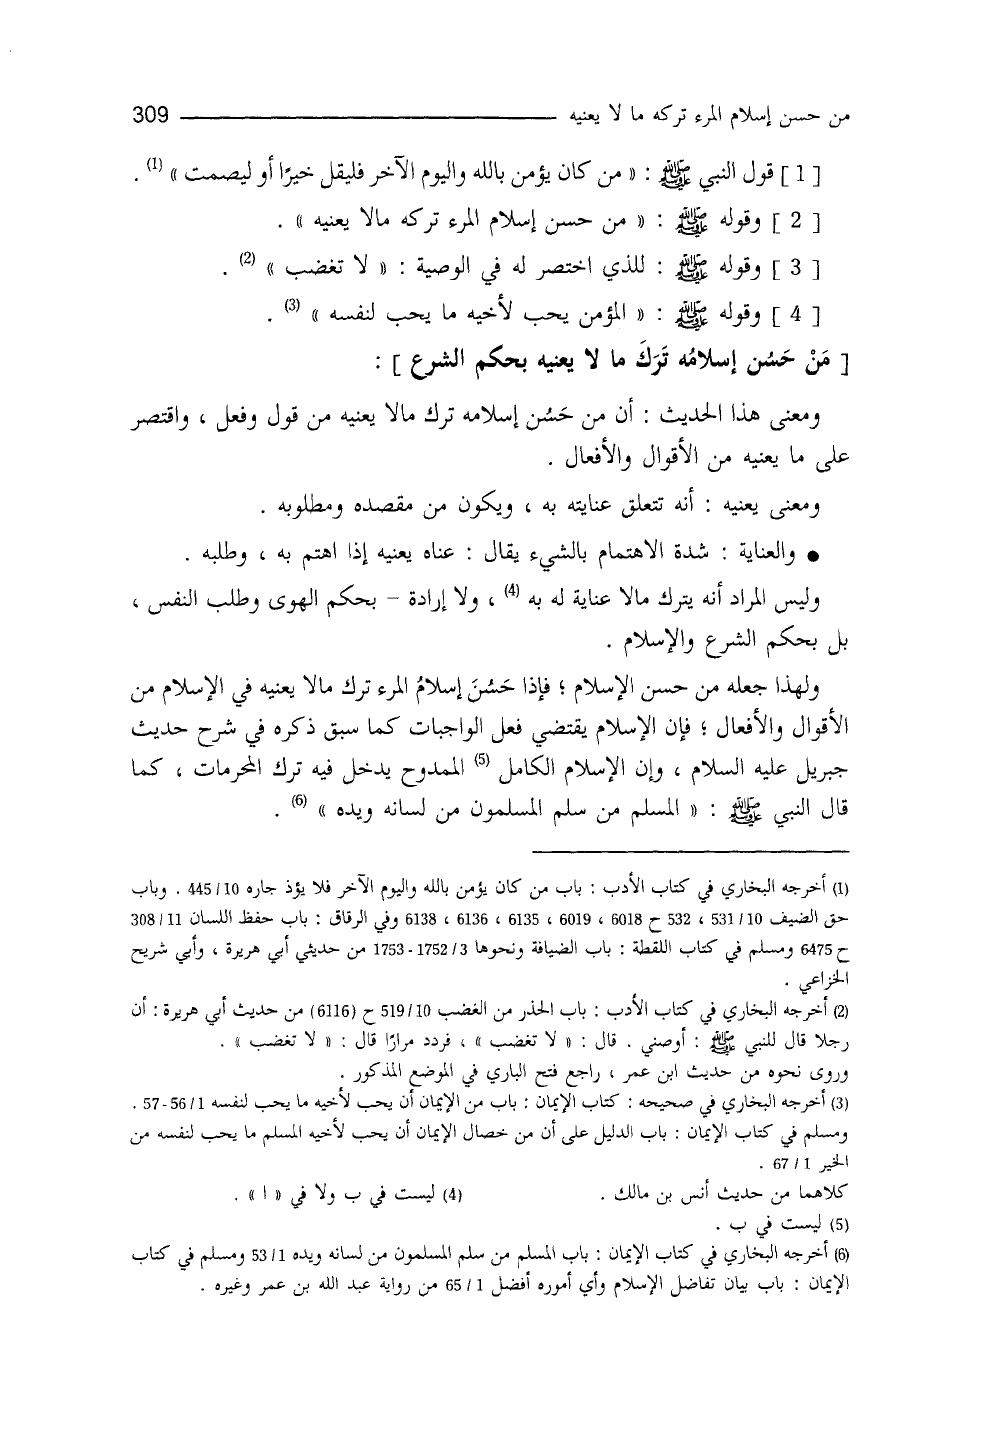 من حسن إسلام المرء تركه ما لا يعنيه 309
[ 1 ] قول النبي ﷺ : « من كان يؤمن بالله واليوم الآخر فليقل خيرًا أو ليصمت » (1) .
[ 2 ] وقوله ﷺ : « من حسن إسلام المرء تركه مالا يعنيه » .
[ 3 ] وقوله ﷺ : للذي اختصر له في الوصية : « لا تغضب » (2) .
[ 4 ] وقوله ﷺ : « المؤمن يحب لأخيه ما يحب لنفسه » (3) .
[ مَنْ حَسُن إسلامُه تَرَكَ ما لا يعنيه بحكم الشرع ] :
ومعنى هذا الحديث : أن من حَسُن إسلامه ترك مالا يعنيه من قول وفعل ، واقتصر
على ما يعنيه من الأقوال والأفعال .
ومعنى يعنيه : أنه تتعلق عنايته به ، ويكون من مقصده ومطلوبه .
● والعناية : شدة الاهتمام بالشيء يقال : عناه يعنيه إذا اهتم به ، وطلبه .
وليس المراد أنه يترك مالا عناية له به (4) ، ولا إرادة – بحكم الهوى وطلب النفس ،
بل بحكم الشرع والإسلام .
ولهذا جعله من حسن الإسلام ؛ فإذا حَسُنَ إسلامُ المرء ترك مالا يعنيه في الإسلام من
الأقوال والأفعال ؛ فإن الإسلام يقتضي فعل الواجبات كما سبق ذكره في شرح حديث
جبريل عليه السلام ، وإن الإسلام الكامل (5) الممدوح يدخل فيه ترك المحرمات ، كما
قال النبي ﷺ : « المسلم من سلم المسلمون من لسانه ويده » (6) .
(1) أخرجه البخاري في كتاب الأدب : باب من كان يؤمن بالله واليوم الآخر فلا يؤذ جاره 10/ 445 . وباب
حق الضيف 10/ 531 ، 532 ح 6018 ، 6019 ، 6135 ، 6136 ، 6138 وفي الرقاق : باب حفظ اللسان 11/ 308
ح 6475 ومسلم في كتاب اللقطة : باب الضيافة ونحوها 3/ 1752 - 1753 من حديثي أبي هريرة ، وأبي شريح
الخزاعي .
(2) أخرجه البخاري في كتاب الأدب : باب الحذر من الغضب 10/ 519 ح (6116) من حديث أبي هريرة : أن
رجلا قال للنبي ﷺ : أوصني . قال : « لا تغضب » ، فردد مرارًا قال : « لا تغضب » .
وروى نحوه من حديث ابن عمر ، راجع فتح الباري في الموضع المذكور .
(3) أخرجه البخاري في صحيحه : كتاب الإيمان : باب من الإيمان أن يحب لأخيه ما يحب لنفسه 1/ 56 - 57 .
ومسلم في كتاب الإيمان : باب الدليل على أن من خصال الإيمان أن يحب لأخيه المسلم ما يحب لنفسه من
الخير 1/ 67 .
كلاهما من حديث أنس بن مالك . (4) ليست في ب ولا في « ا » .
(5) ليست في ب .
(6) أخرجه البخاري في كتاب الإيمان : باب المسلم من سلم المسلمون من لسانه ويده 1/ 53 ومسلم في كتاب
الإيمان : باب بيان تفاضل الإسلام وأي أموره أفضل 1/ 65 من رواية عبد الله بن عمر وغيره .